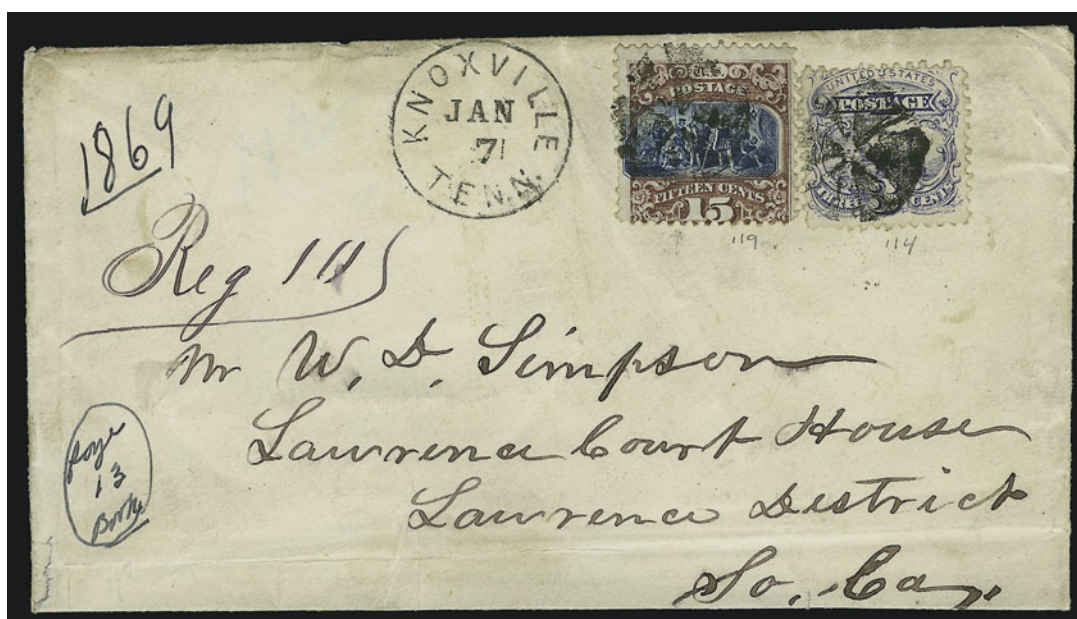 KNOXVILLE
JAN
7
TENN.
U.S.
POSTAGE
FIFTEEN CENTS
15
UNITED STATES
POSTAGE
THREE CENTS
119
114
1869
Reg 1115
Mr W. D. Simpson
Lawrence Court House
Lawrence District
So. Ca.
13